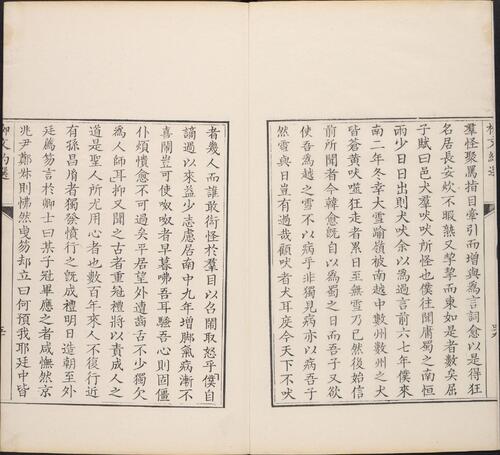 柳文約選
羣怪聚罵指目牽引而增與為言詞愈以是得狂
名居長安炊不暇熟又挈挈而東如是者數矣屈
子賦曰邑犬羣吠吠所怪也僕往聞庸蜀之南恒
雨少日日出則犬吠余以為過言前六七年僕來
南二年冬幸大雪踰嶺被南越中數州數州之犬
皆蒼黃吠噬狂走者累日至無雪乃已然後始信
前所聞者今韓愈既自以為蜀之日而吾子又欲
使吾為越之雪不以病乎非獨見病亦以病吾子
然雪與日豈有過哉顧吠者犬耳度今天下不吠
者幾人而誰敢衒怪於羣目以召鬧取怒乎僕自
謫過以來益少志慮居南中九年增脚氣病漸不
喜鬧豈可使呶呶者早暮咈吾耳騷吾心則固僵
仆煩憒愈不可過矣平居望外遭齒舌不少獨欠
為人師耳抑又聞之古者重冠禮將以責成人之
道是聖人所尤用心者也數百年來人不復行近
有孫昌胤者獨發憤行之既成禮明日造朝至外
廷薦笏言於卿士曰某子冠畢應之者咸憮然京
兆尹鄭叔則怫然曳笏却立曰何預我耶廷中皆
柳文約選